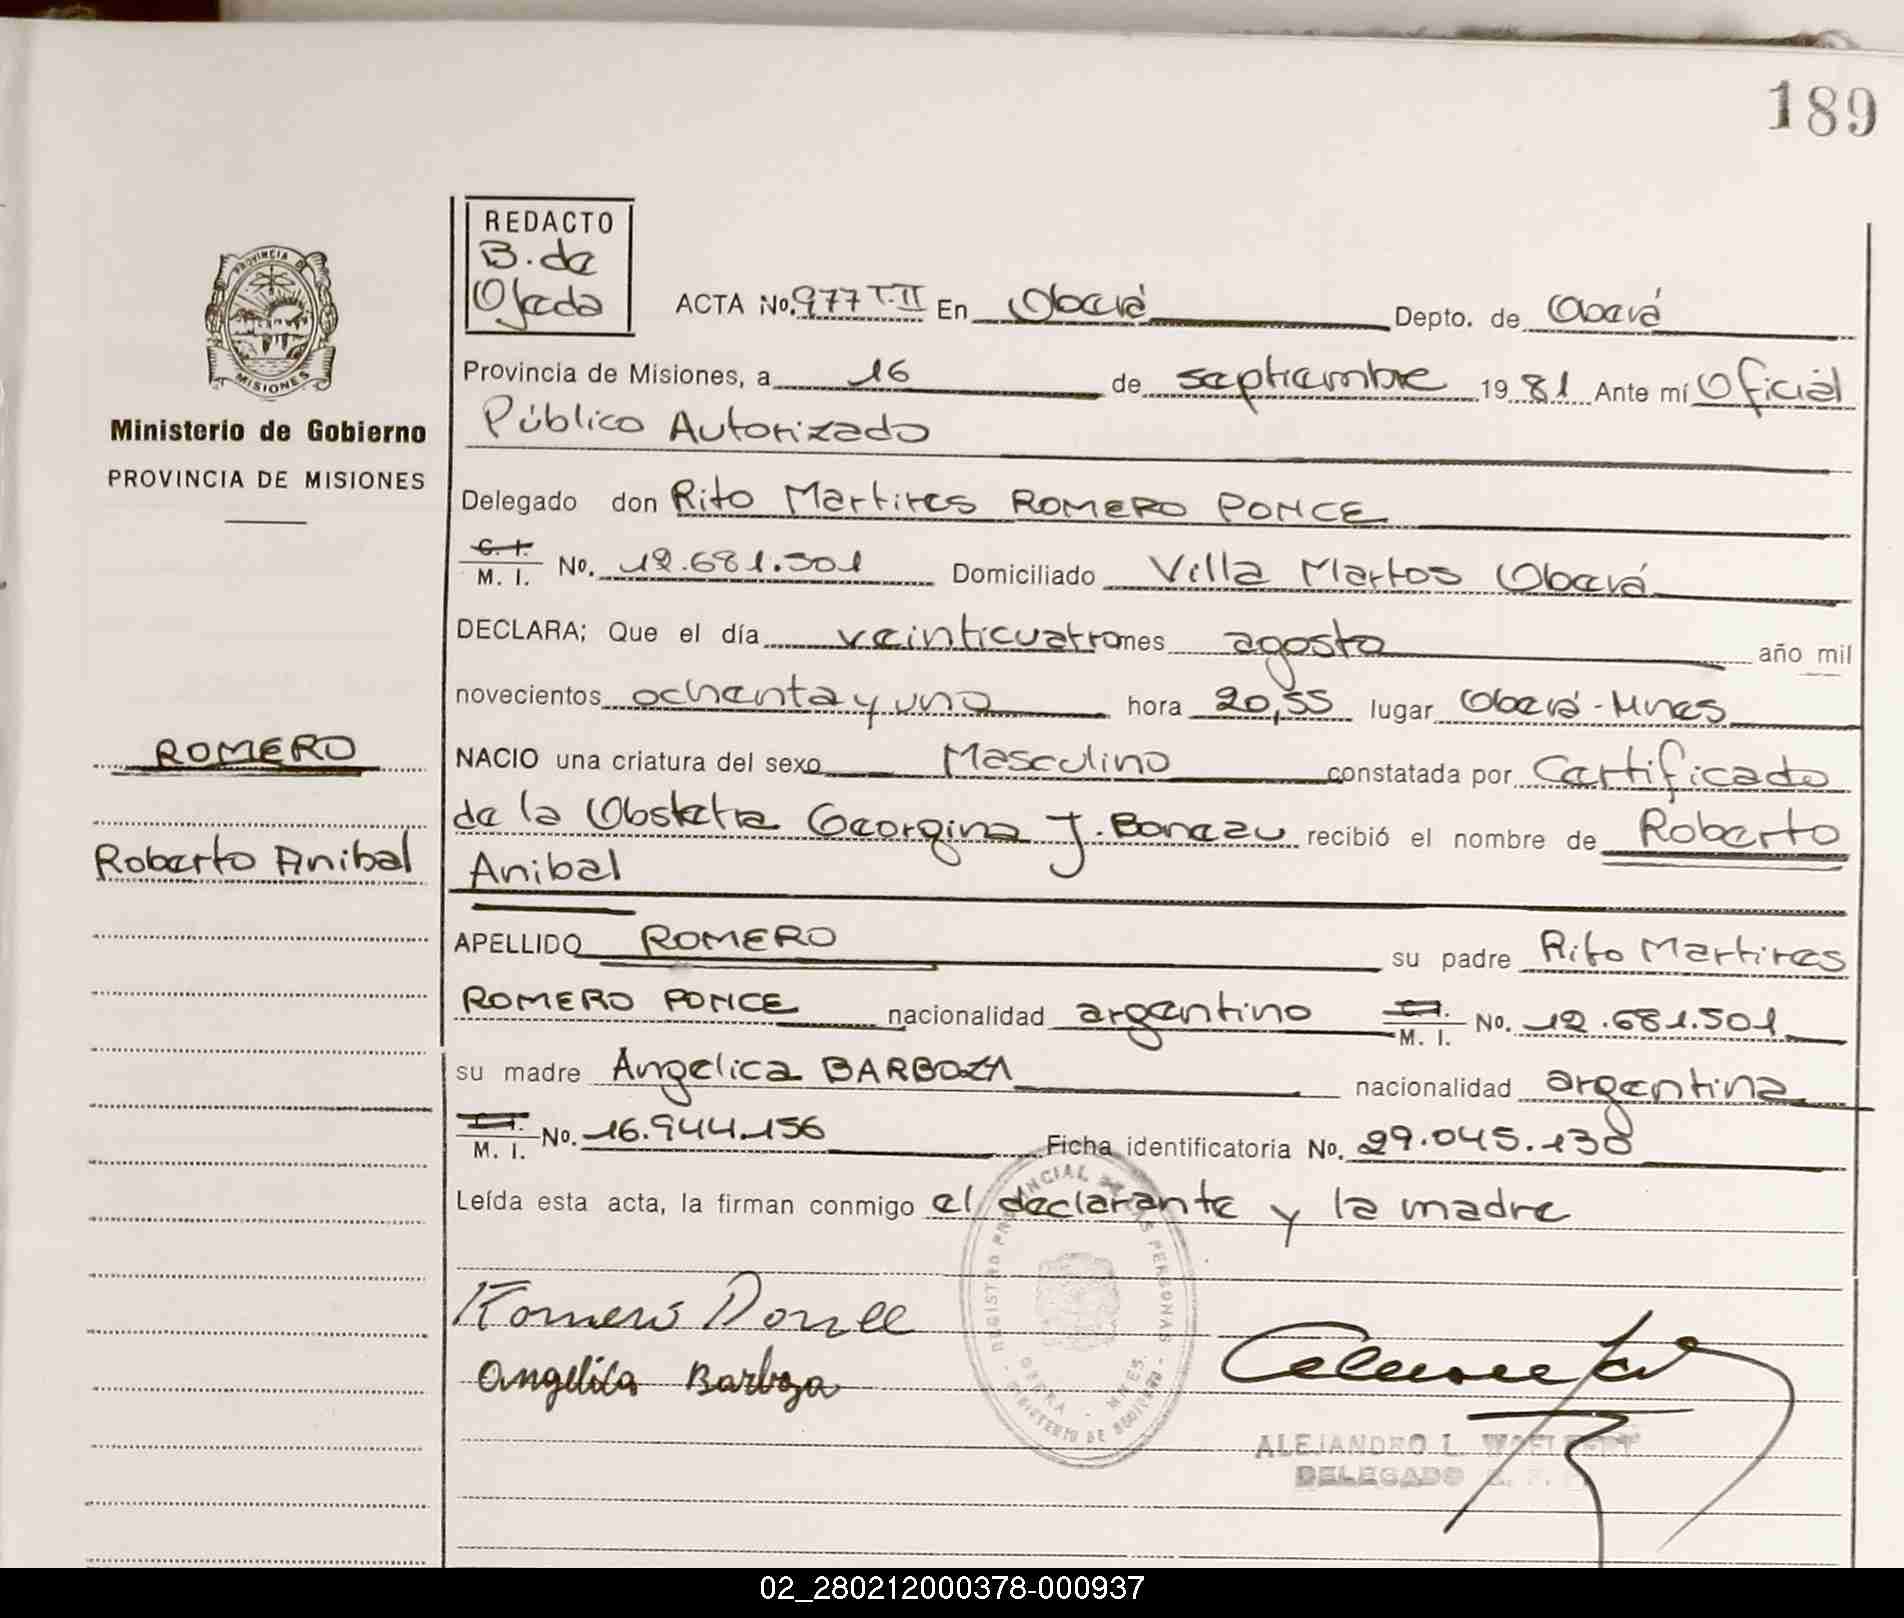 189
PROVINCIA DE
MISIONES
Ministerio de Gobierno
PROVINCIA DE MISIONES
REDACTO
B. de
Ojeda
ACTA No. 977 T.II En Oberá Depto. de Oberá
Provincia de Misiones, a 16 de septiembre 1981 Ante mí Oficial
Público Autorizado
Delegado don Rito Martires ROMERO PONCE
C. I.
M. I. No. 12.681.501 Domiciliado Villa Martos Oberá
DECLARA; Que el día veinticuatro mes agosto año mil
novecientos ochenta y uno hora 20,55 lugar Oberá-Mnes
ROMERO
NACIO una criatura del sexo Masculino constatada por Certificado
de la Obstetra Georgina J. recibió el nombre de Roberto
Roberto Anibal
Anibal
APELLIDO ROMERO su padre Rito Martires
ROMERO PONCE nacionalidad argentino C.I. M. I. No. 12.681.501
su madre Angelica BARBOZA nacionalidad argentina
C.I. M. I. No. 16.944.156 Ficha identificatoria No. 29.045.138
Leída esta acta, la firman conmigo el declarante y la madre
REGISTRO PROVINCIAL DE LAS PERSONAS
OBERA - MNES.
MINISTERIO DE GOBIERNO
Romero Ponce
Angelica Barboza
ALEJANDRO L.
DELEGADO
02_280212000378-000937